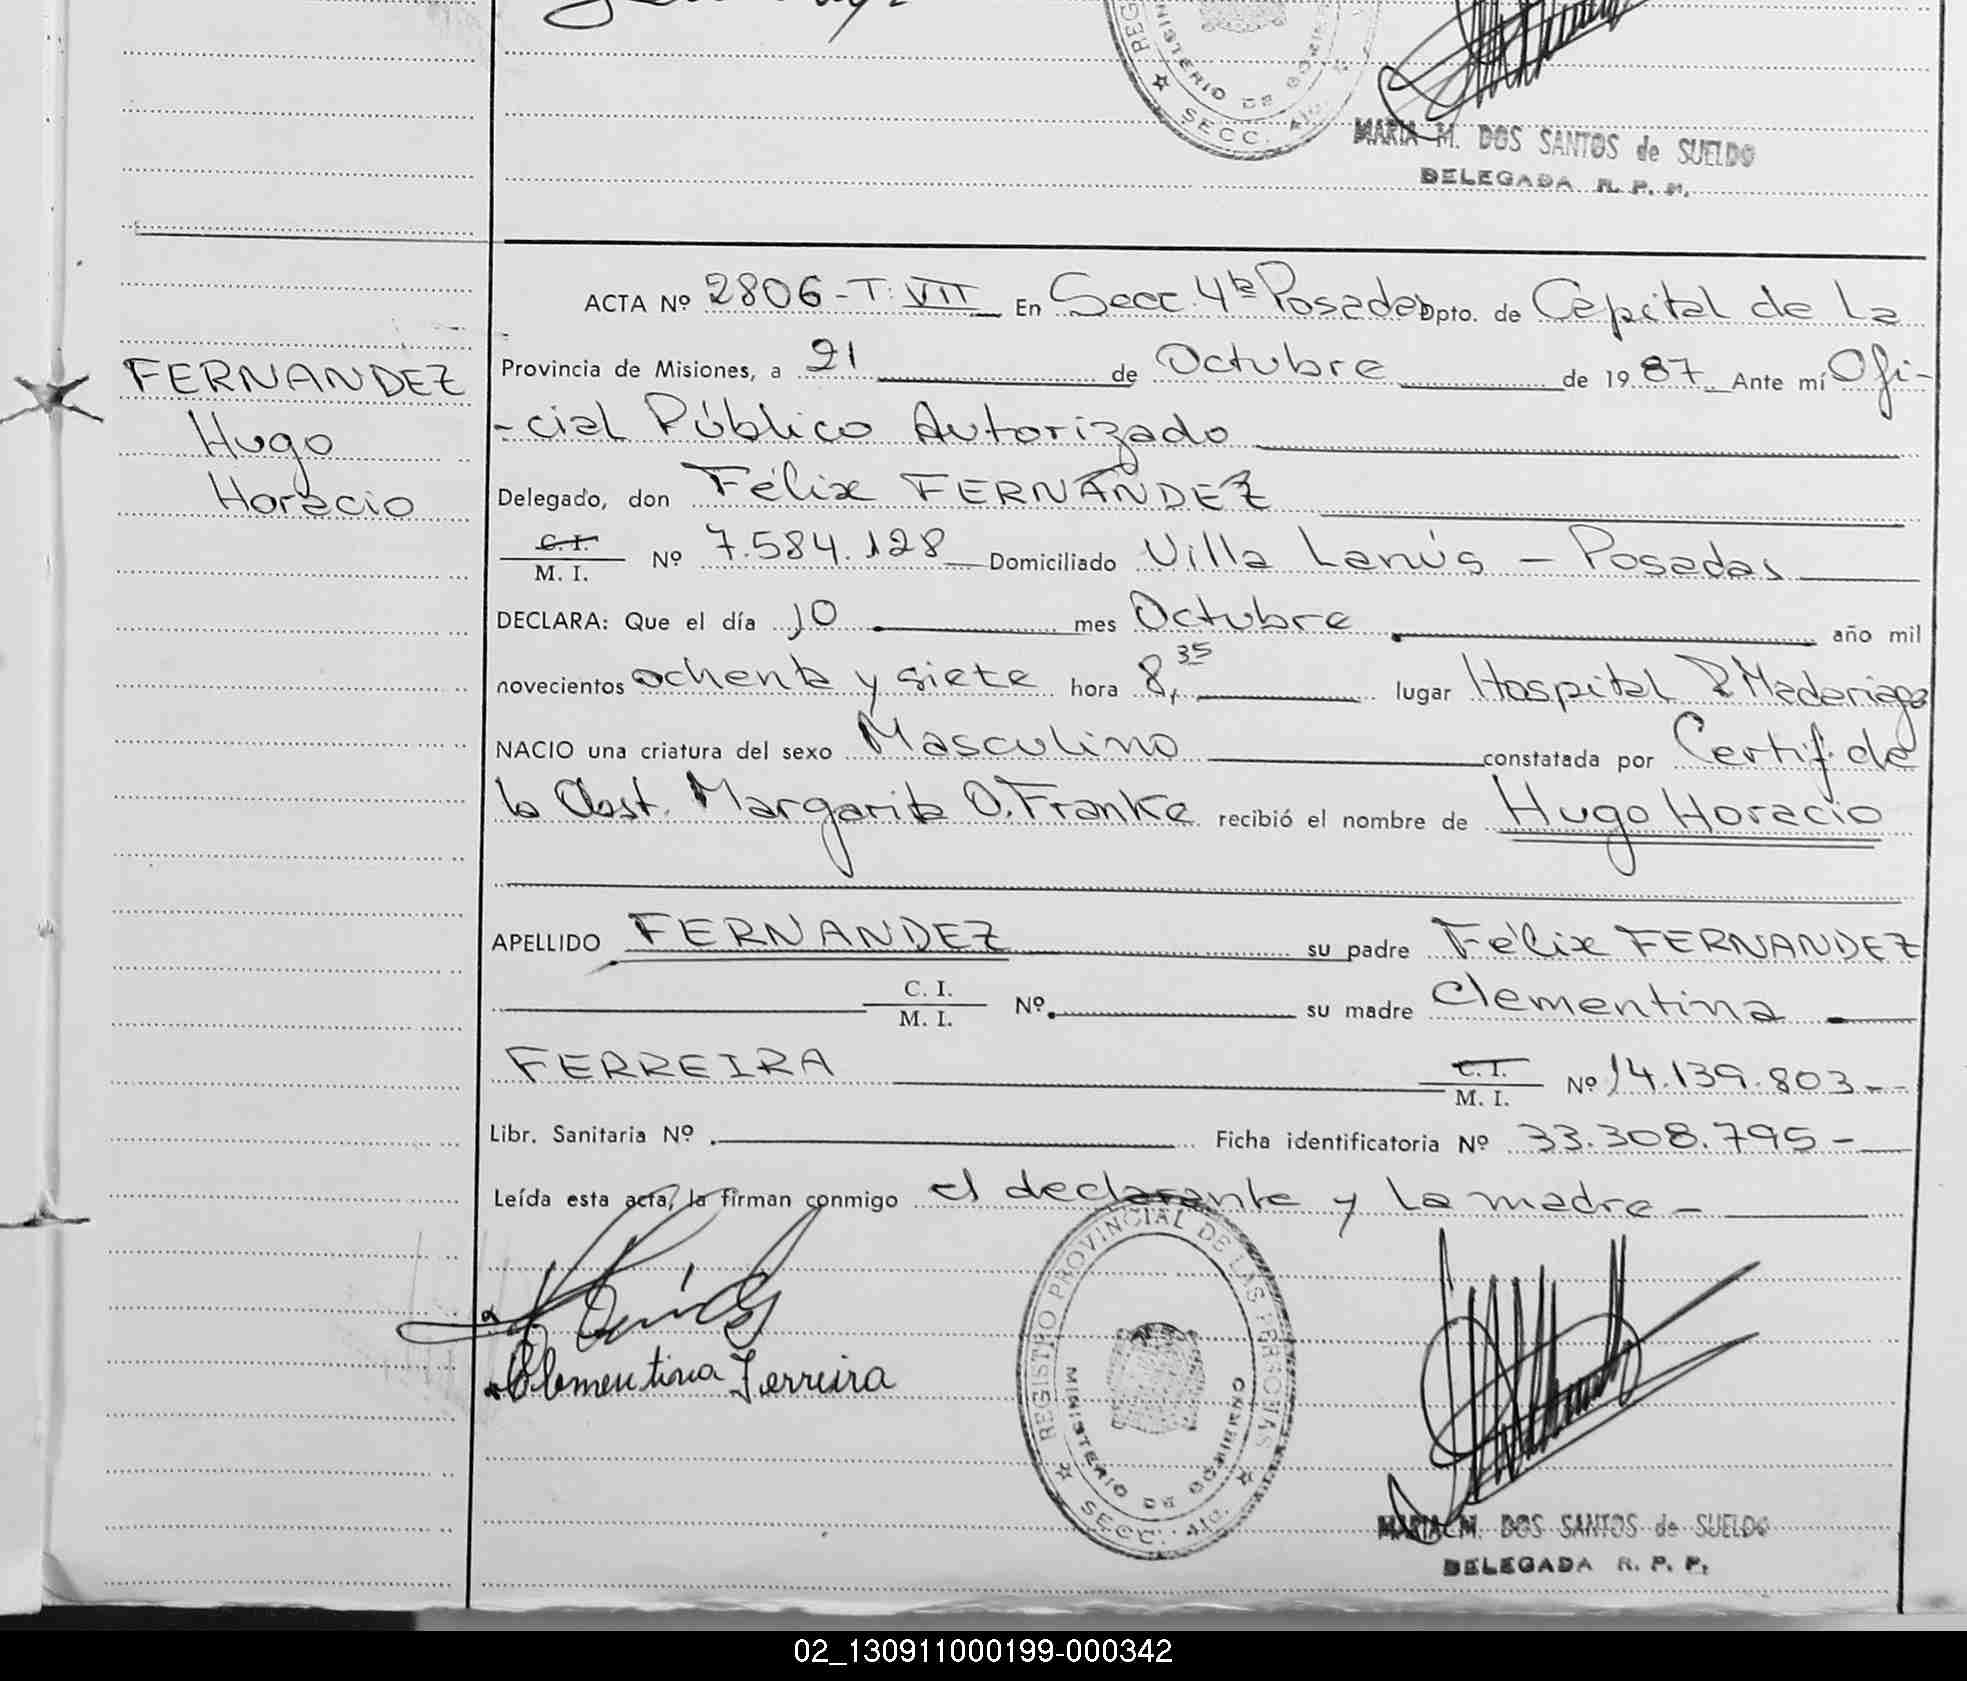 REG
MINISTERIO DE GOBIE
SECC. 4ta.
MARIA M. DOS SANTOS de SUELDO
DELEGADA R. P. P.
ACTA Nº 2806-T: VII En Secc. 4ta Posadas Dpto. de Capital de la
FERNANDEZ
Hugo
Horacio
Provincia de Misiones, a 21 de Octubre de 1987 Ante mí Ofi-
-cial Público Autorizado
Delegado, don Félix FERNÁNDEZ
C. I.
M. I. Nº 7.584.128 Domiciliado Villa Lanús - Posadas
DECLARA: Que el día 10 mes Octubre año mil
novecientos ochenta y siete hora 8,35 lugar Hospital R Madariaga
NACIO una criatura del sexo Masculino constatada por Certif. de
la Obst. Margarita O. Franke recibió el nombre de Hugo Horacio
APELLIDO FERNANDEZ su padre Félix FERNANDEZ
C. I.
M. I. Nº su madre Clementina
FERREIRA C. I.
M. I. Nº 14.139.803--
Libr. Sanitaria Nº Ficha identificatoria Nº 33.308.795-
Leída esta acta, la firman conmigo el declarante y la madre-
Clementina Ferreira
REGISTRO PROVINCIAL DE LAS PERSONAS
MINISTERIO DE GOBIERNO
SECC. 4ta.
MARIA M. DOS SANTOS de SUELDO
DELEGADA R. P. P.
02_130911000199-000342